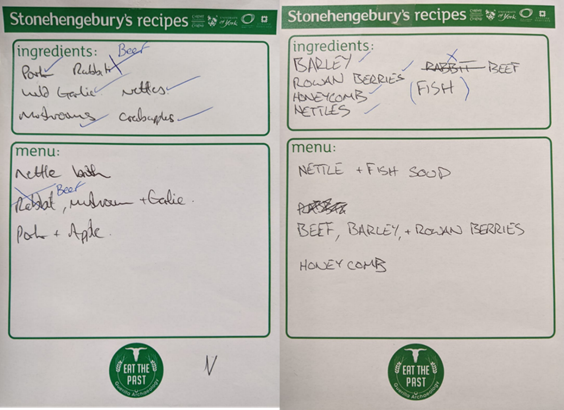 Stonehengebury's recipes
ingredients:
Beef
Pork Rabbit
Wild Garlic Nettles
Mushrooms Crabapples
menu:
Nettle broth
Beef
Rabbit, Mushroom + Garlic.
Pork + Apple.
EAT THE
PAST
Guerilla Archaeology
N
Stonehengebury's recipes
ingredients:
BARLEY
ROWAN BERRIES RABBIT BEEF
HONEYCOMB (FISH)
NETTLES
menu:
NETTLE + FISH SOUP
BEEF, BARLEY, + ROWAN BERRIES
HONEYCOMB
EAT THE
PAST
Guerilla Archaeology